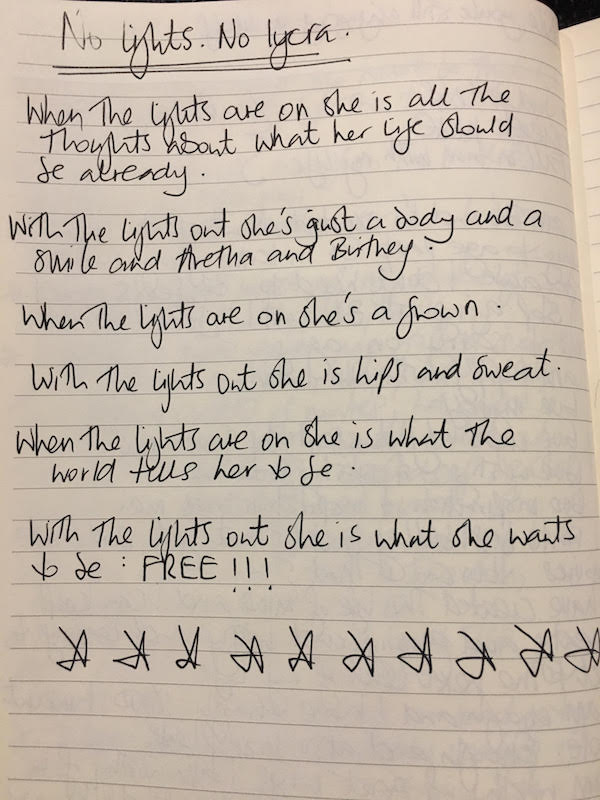 No lights. No lycra.
When the lights are on she is all the
thoughts about what her life should
be already.
With the lights out she's just a body and a
smile and Aretha and Britney.
When the lights are on she's a frown.
With the lights out she is hips and sweat.
When the lights are on she is what the
world tells her to be.
With the lights out she is what she wants
to be: FREE!!!